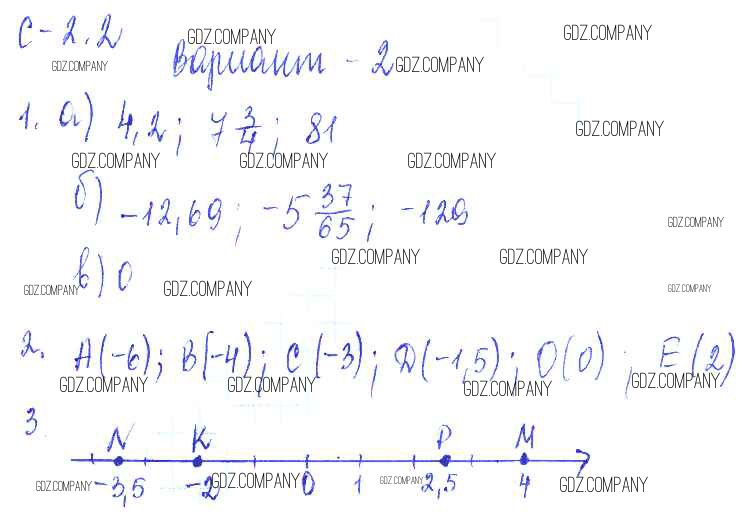 С-2.2
GDZ.COMPANY GDZ.COMPANY
GDZ.COMPANY Вариант - 2 GDZ.COMPANY
1. а) 4,2; 7 3/4; 81
GDZ.COMPANY
GDZ.COMPANY GDZ.COMPANY GDZ.COMPANY
б) -12,69; -5 37/65; -129
GDZ.COMPANY
GDZ.COMPANY GDZ.COMPANY
в) 0
GDZ.COMPANY GDZ.COMPANY GDZ.COMPANY
2. A(-6); B(-4); C(-3); D(-1,5); O(0); E(2)
GDZ.COMPANY GDZ.COMPANY GDZ.COMPANY GDZ.COMPANY
3
N K P M
-3,5 -2 0 1 2,5 4
GDZ.COMPANY GDZ.COMPANY GDZ.COMPANY GDZ.COMPANY